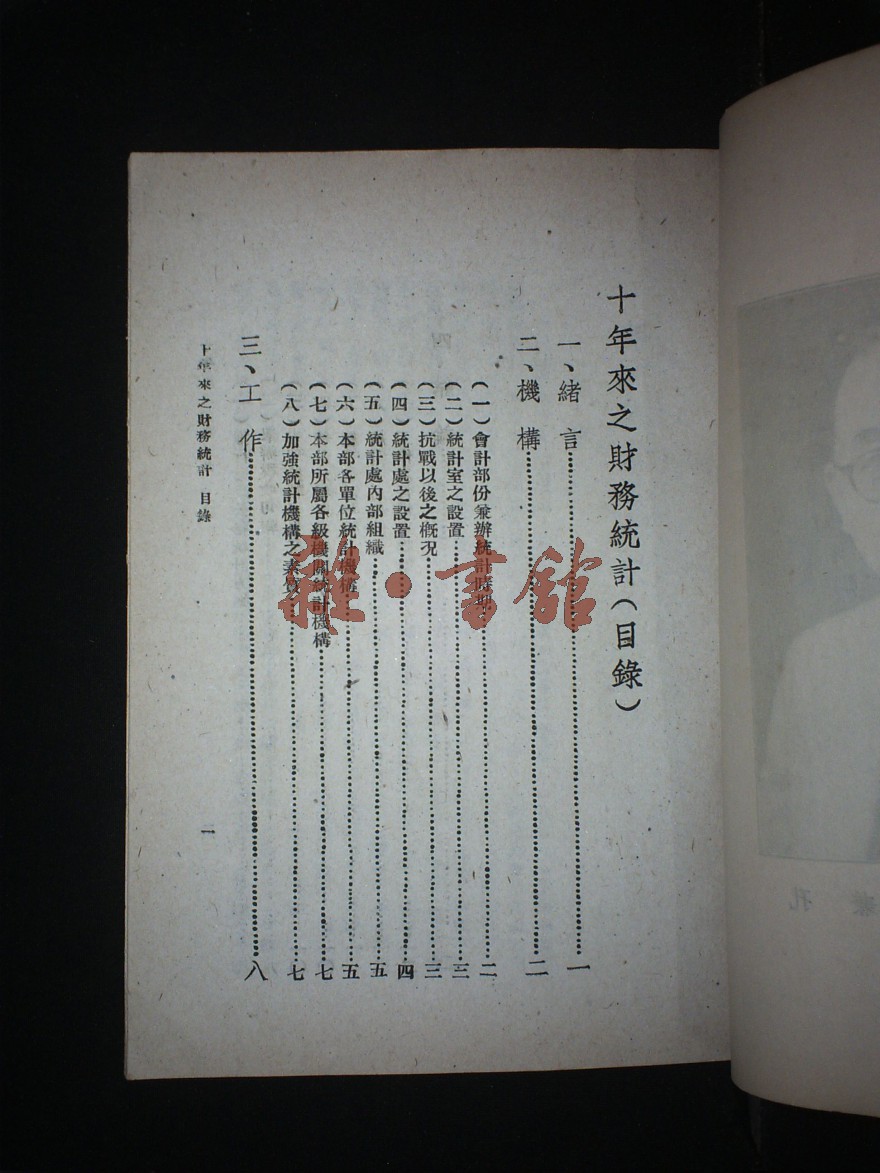 十年來之財務統計（目錄）
一、緒言……一
二、機構……二
（一）會計部份兼辦統計時期……二
（二）統計室之設置……三
（三）抗戰以後之概況……三
（四）統計處之設置……四
（五）統計處內部組織……五
（六）本部各單位統計機構……五
（七）本部所屬各級機關統計機構……七
（八）加強統計機構之素質……七
三、工作……八
十年來之財務統計 目錄
一
雜·書館
孔